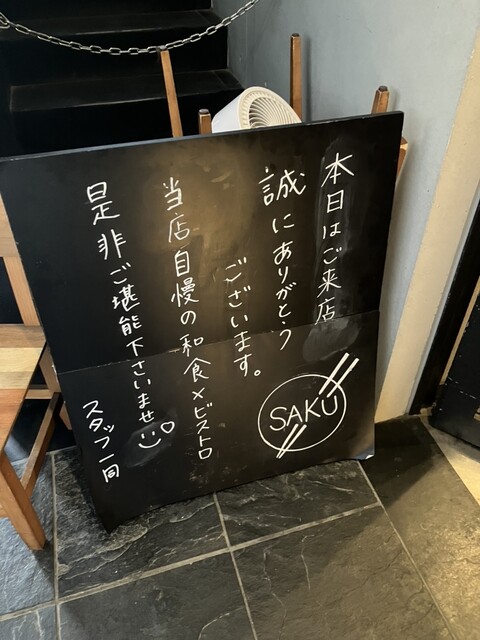 本日はご来店
誠にありがとう
ございます。
当店自慢の和食×ビストロ
是非ご堪能下さいませ
スタッフ一同
SAKU